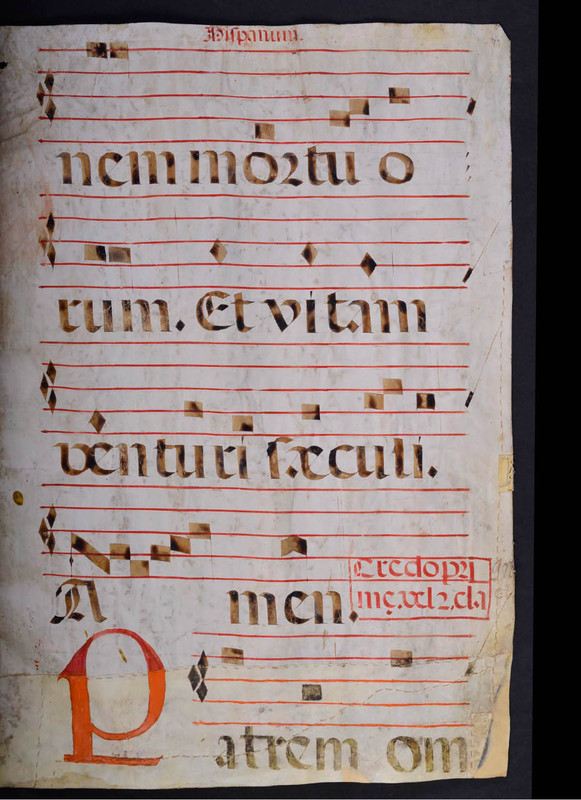 Hispanum.
nem mortu o
rum. Et vitam
venturi sæculi.
A men.
Credo pri
mę. vel 2. cla
Patrem om